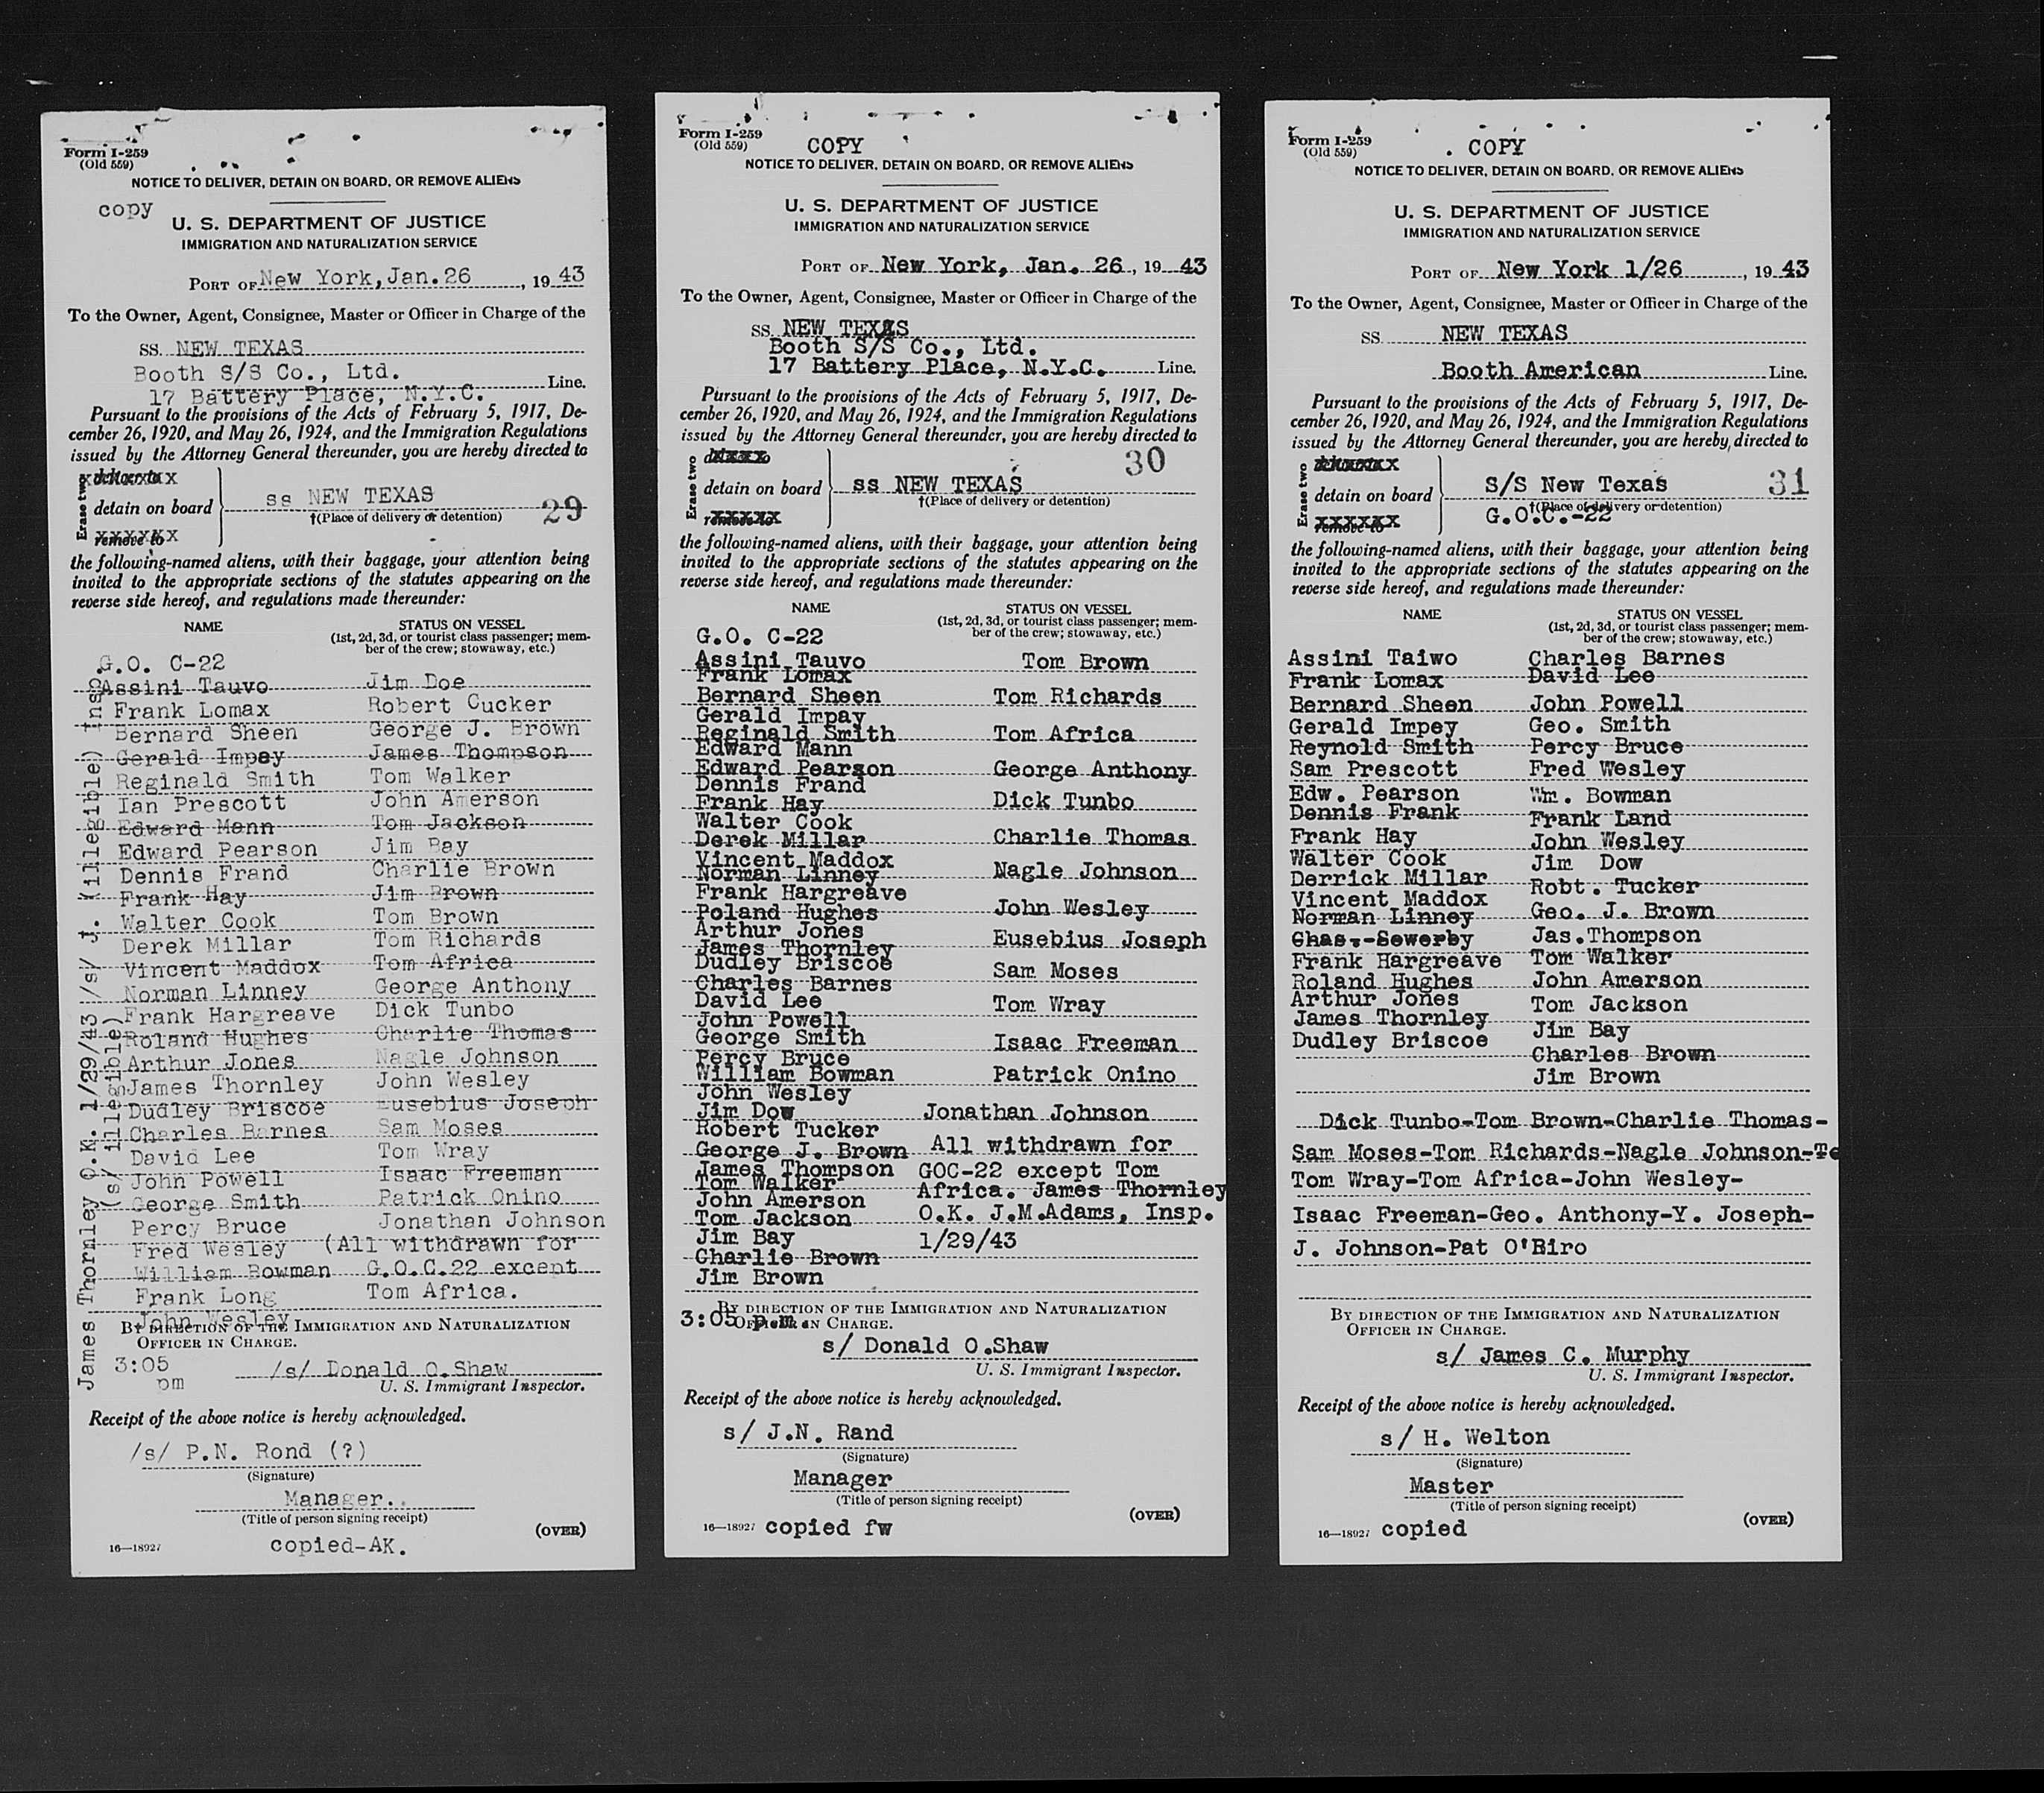 Form I-259
(Old 559)
NOTICE TO DELIVER, DETAIN ON BOARD, OR REMOVE ALIENS
copy
U. S. DEPARTMENT OF JUSTICE
IMMIGRATION AND NATURALIZATION SERVICE
PORT OF New York, Jan. 26, 19 43
To the Owner, Agent, Consignee, Master or Officer in Charge of the
SS. NEW TEXAS
Booth S/S Co., Ltd.
17 Battery Place, N.Y.C. Line.
Pursuant to the provisions of the Acts of February 5, 1917, De-
cember 26, 1920, and May 26, 1924, and the Immigration Regulations
issued by the Attorney General thereunder, you are hereby directed to
Erase two
detain on board
remove to
ss NEW TEXAS
29
†(Place of delivery or detention)
the following-named aliens, with their baggage, your attention being
invited to the appropriate sections of the statutes appearing on the
reverse side hereof, and regulations made thereunder:
NAME STATUS ON VESSEL
(1st, 2d, 3d, or tourist class passenger; mem-
ber of the crew; stowaway, etc.)
G.O. C-22
Assini Tauvo Jim Doe
Frank Lomax Robert Cucker
Bernard Sheen George J. Brown
Gerald Impay James Thompson
Reginald Smith Tom Walker
Ian Prescott John Amerson
Edward Mann Tom Jackson
Edward Pearson Jim Bay
Dennis Frand Charlie Brown
Frank Hay Jim Brown
Walter Cook Tom Brown
Derek Millar Tom Richards
Vincent Maddox Tom Africa
Norman Linney George Anthony
Frank Hargreave Dick Tunbo
Roland Hughes Charlie Thomas
Arthur Jones Nagle Johnson
James Thornley John Wesley
Dudley Briscoe Eusebius Joseph
Charles Barnes Sam Moses
David Lee Tom Wray
John Powell Isaac Freeman
George Smith Patrick Onino
Percy Bruce Jonathan Johnson
Fred Wesley (All withdrawn for
William Bowman G.O.C.22 except
Frank Long Tom Africa.
John Wesley
James Thornley O.K. 1/29/43 /s/ J. (illegible) Insp.
(s/ illegible)
BY DIRECTION OF THE IMMIGRATION AND NATURALIZATION
OFFICER IN CHARGE.
3:05
pm
/s/ Donald O.Shaw
U. S. Immigrant Inspector.
Receipt of the above notice is hereby acknowledged.
/s/ P.N. Rond (?)
(Signature)
Manager..
(Title of person signing receipt)
(OVER)
16—18927
copied-AK.
Form I-259
(Old 559)
COPY
NOTICE TO DELIVER, DETAIN ON BOARD, OR REMOVE ALIENS
U. S. DEPARTMENT OF JUSTICE
IMMIGRATION AND NATURALIZATION SERVICE
PORT OF New York, Jan. 26, 19 43
To the Owner, Agent, Consignee, Master or Officer in Charge of the
SS. NEW TEXAS
Booth S/S Co., Ltd.
17 Battery Place, N.Y.C. Line.
Pursuant to the provisions of the Acts of February 5, 1917, De-
cember 26, 1920, and May 26, 1924, and the Immigration Regulations
issued by the Attorney General thereunder, you are hereby directed to
Erase two
30
detain on board
remove to
ss NEW TEXAS
†(Place of delivery or detention)
the following-named aliens, with their baggage, your attention being
invited to the appropriate sections of the statutes appearing on the
reverse side hereof, and regulations made thereunder:
NAME STATUS ON VESSEL
(1st, 2d, 3d, or tourist class passenger; mem-
ber of the crew; stowaway, etc.)
G.O. C-22
Assini Tauvo Tom Brown
Frank Lomax
Bernard Sheen Tom Richards
Gerald Impay
Reginald Smith Tom Africa
Edward Mann
Edward Pearson George Anthony
Dennis Frand
Frank Hay Dick Tunbo
Walter Cook
Derek Millar Charlie Thomas
Vincent Maddox
Norman Linney Nagle Johnson
Frank Hargreave
Poland Hughes John Wesley
Arthur Jones
James Thornley Eusebius Joseph
Dudley Briscoe
Charles Barnes Sam Moses
David Lee Tom Wray
John Powell
George Smith Isaac Freeman
Percy Bruce
William Bowman Patrick Onino
John Wesley
Jim Dow Jonathan Johnson
Robert Tucker
George J. Brown All withdrawn for
James Thompson GOC-22 except Tom
Tom Walker Africa. James Thornley
John Amerson
Tom Jackson O.K. J.M.Adams, Insp.
Jim Bay 1/29/43
Charlie Brown
Jim Brown
BY DIRECTION OF THE IMMIGRATION AND NATURALIZATION
OFFICER IN CHARGE.
3:05 p.m.
s/ Donald O.Shaw
U. S. Immigrant Inspector.
Receipt of the above notice is hereby acknowledged.
s/ J.N. Rand
(Signature)
Manager
(Title of person signing receipt)
(OVER)
16—18927 copied fw
Form I-259
(Old 559)
COPY
NOTICE TO DELIVER, DETAIN ON BOARD, OR REMOVE ALIENS
U. S. DEPARTMENT OF JUSTICE
IMMIGRATION AND NATURALIZATION SERVICE
PORT OF New York 1/26, 19 43
To the Owner, Agent, Consignee, Master or Officer in Charge of the
SS. NEW TEXAS
Booth American Line.
Pursuant to the provisions of the Acts of February 5, 1917, De-
cember 26, 1920, and May 26, 1924, and the Immigration Regulations
issued by the Attorney General thereunder, you are hereby directed to
Erase two
detain on board
remove to
S/S New Texas
31
†(Place of delivery or detention)
G.O.C.-22
the following-named aliens, with their baggage, your attention being
invited to the appropriate sections of the statutes appearing on the
reverse side hereof, and regulations made thereunder:
NAME STATUS ON VESSEL
(1st, 2d, 3d, or tourist class passenger; mem-
ber of the crew; stowaway, etc.)
Assini Taiwo Charles Barnes
Frank Lomax David Lee
Bernard Sheen John Powell
Gerald Impey Geo. Smith
Reynold Smith Percy Bruce
Sam Prescott Fred Wesley
Edw. Pearson Wm. Bowman
Dennis Frank Frank Land
Frank Hay John Wesley
Walter Cook Jim Dow
Derrick Millar Robt. Tucker
Vincent Maddox
Norman Linney Geo. J. Brown
Chas. Sowerby Jas.Thompson
Frank Hargreave Tom Walker
Roland Hughes John Amerson
Arthur Jones Tom Jackson
James Thornley
Dudley Briscoe Jim Bay
Charles Brown
Jim Brown
Dick Tunbo-Tom Brown-Charlie Thomas-
Sam Moses-Tom Richards-Nagle Johnson-
Tom Wray-Tom Africa-John Wesley-
Isaac Freeman-Geo. Anthony-Y. Joseph-
J. Johnson-Pat O'Riro
BY DIRECTION OF THE IMMIGRATION AND NATURALIZATION
OFFICER IN CHARGE.
s/ James C. Murphy
U. S. Immigrant Inspector.
Receipt of the above notice is hereby acknowledged.
s/ H. Welton
(Signature)
Master
(Title of person signing receipt)
(OVER)
16—18927 copied